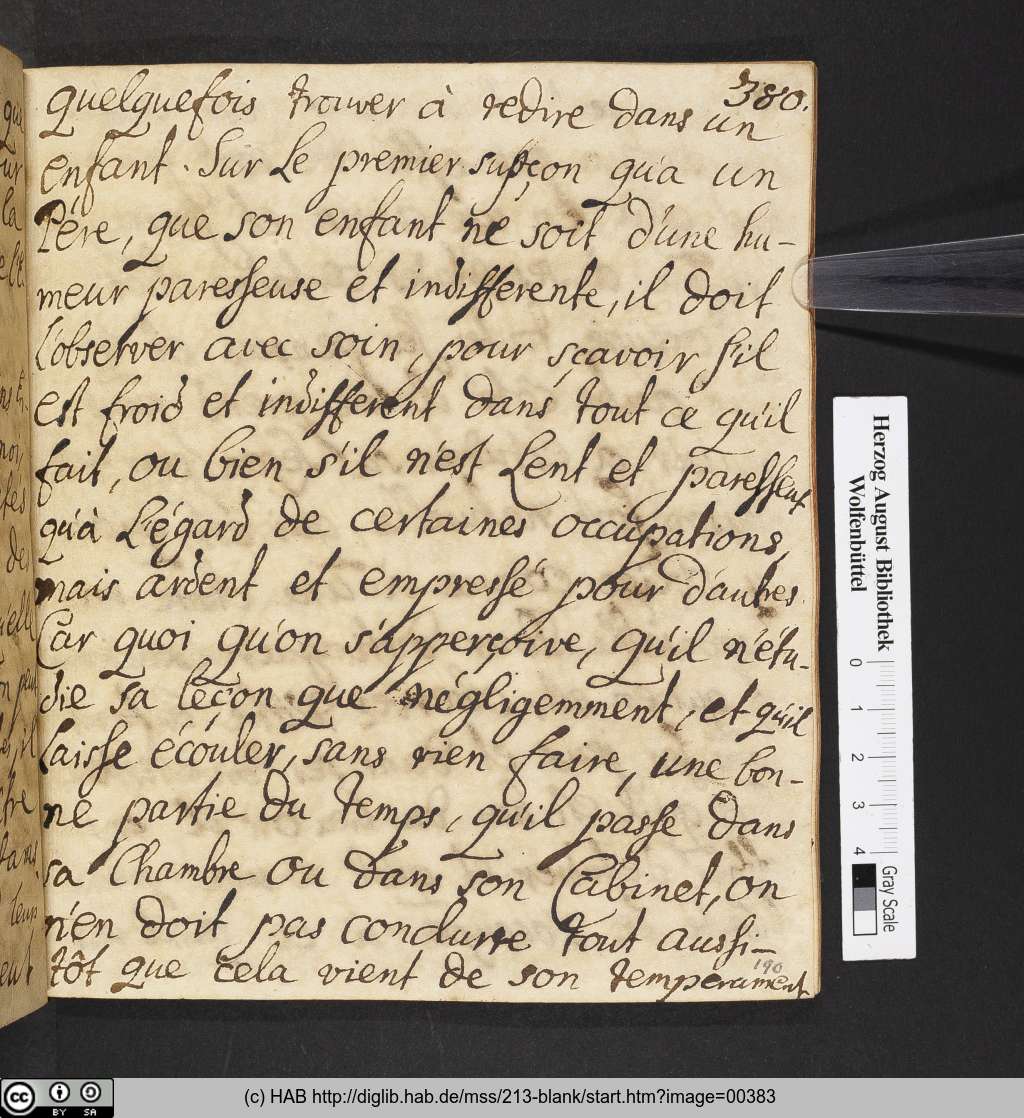 380.
quelquefois trouver à redire dans un
enfant. Sur Le premier supçon qu'a un
Père, que son enfant ne soit d'une hu-
meur paresseuse et indifferente, il doit
l'observer avec soin, pour sçavoir s'il
est froid et indifferent dans tout ce qu'il
fait, ou bien s'il n'est Lent et paresseux
qu'à L'égard de certaines occupations,
mais ardent et empressé pour d'autres.
Car quoi qu'on s'apperçoive, qu'il n'étu-
die sa leçon que négligemment, et qu'il
laisse écouler, sans rien faire, une bon-
ne partie du temps, qu'il passe dans
sa Chambre ou dans son Cabinet, on
n'en doit pas conclurre tout aussi-
tôt que cela vient de son temperament
190
Herzog August Bibliothek
Wolfenbüttel
0 1 2 3 4
Gray Scale
cc BY SA
(c) HAB http://diglib.hab.de/mss/213-blank/start.htm?image=00383